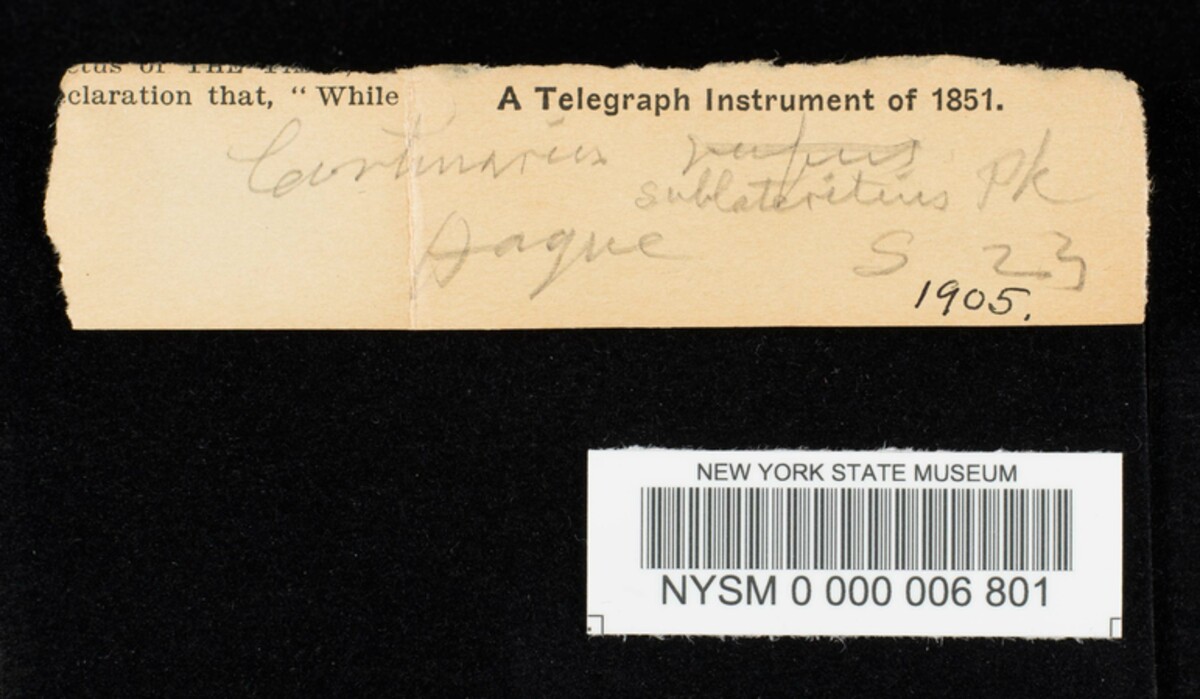 claration that, “ While
A Telegraph Instrument of 1851.
Cortinarius rufus
sublateritius Pk
Hague S 23
1905.
NEW YORK STATE MUSEUM
NYSM 0 000 006 801